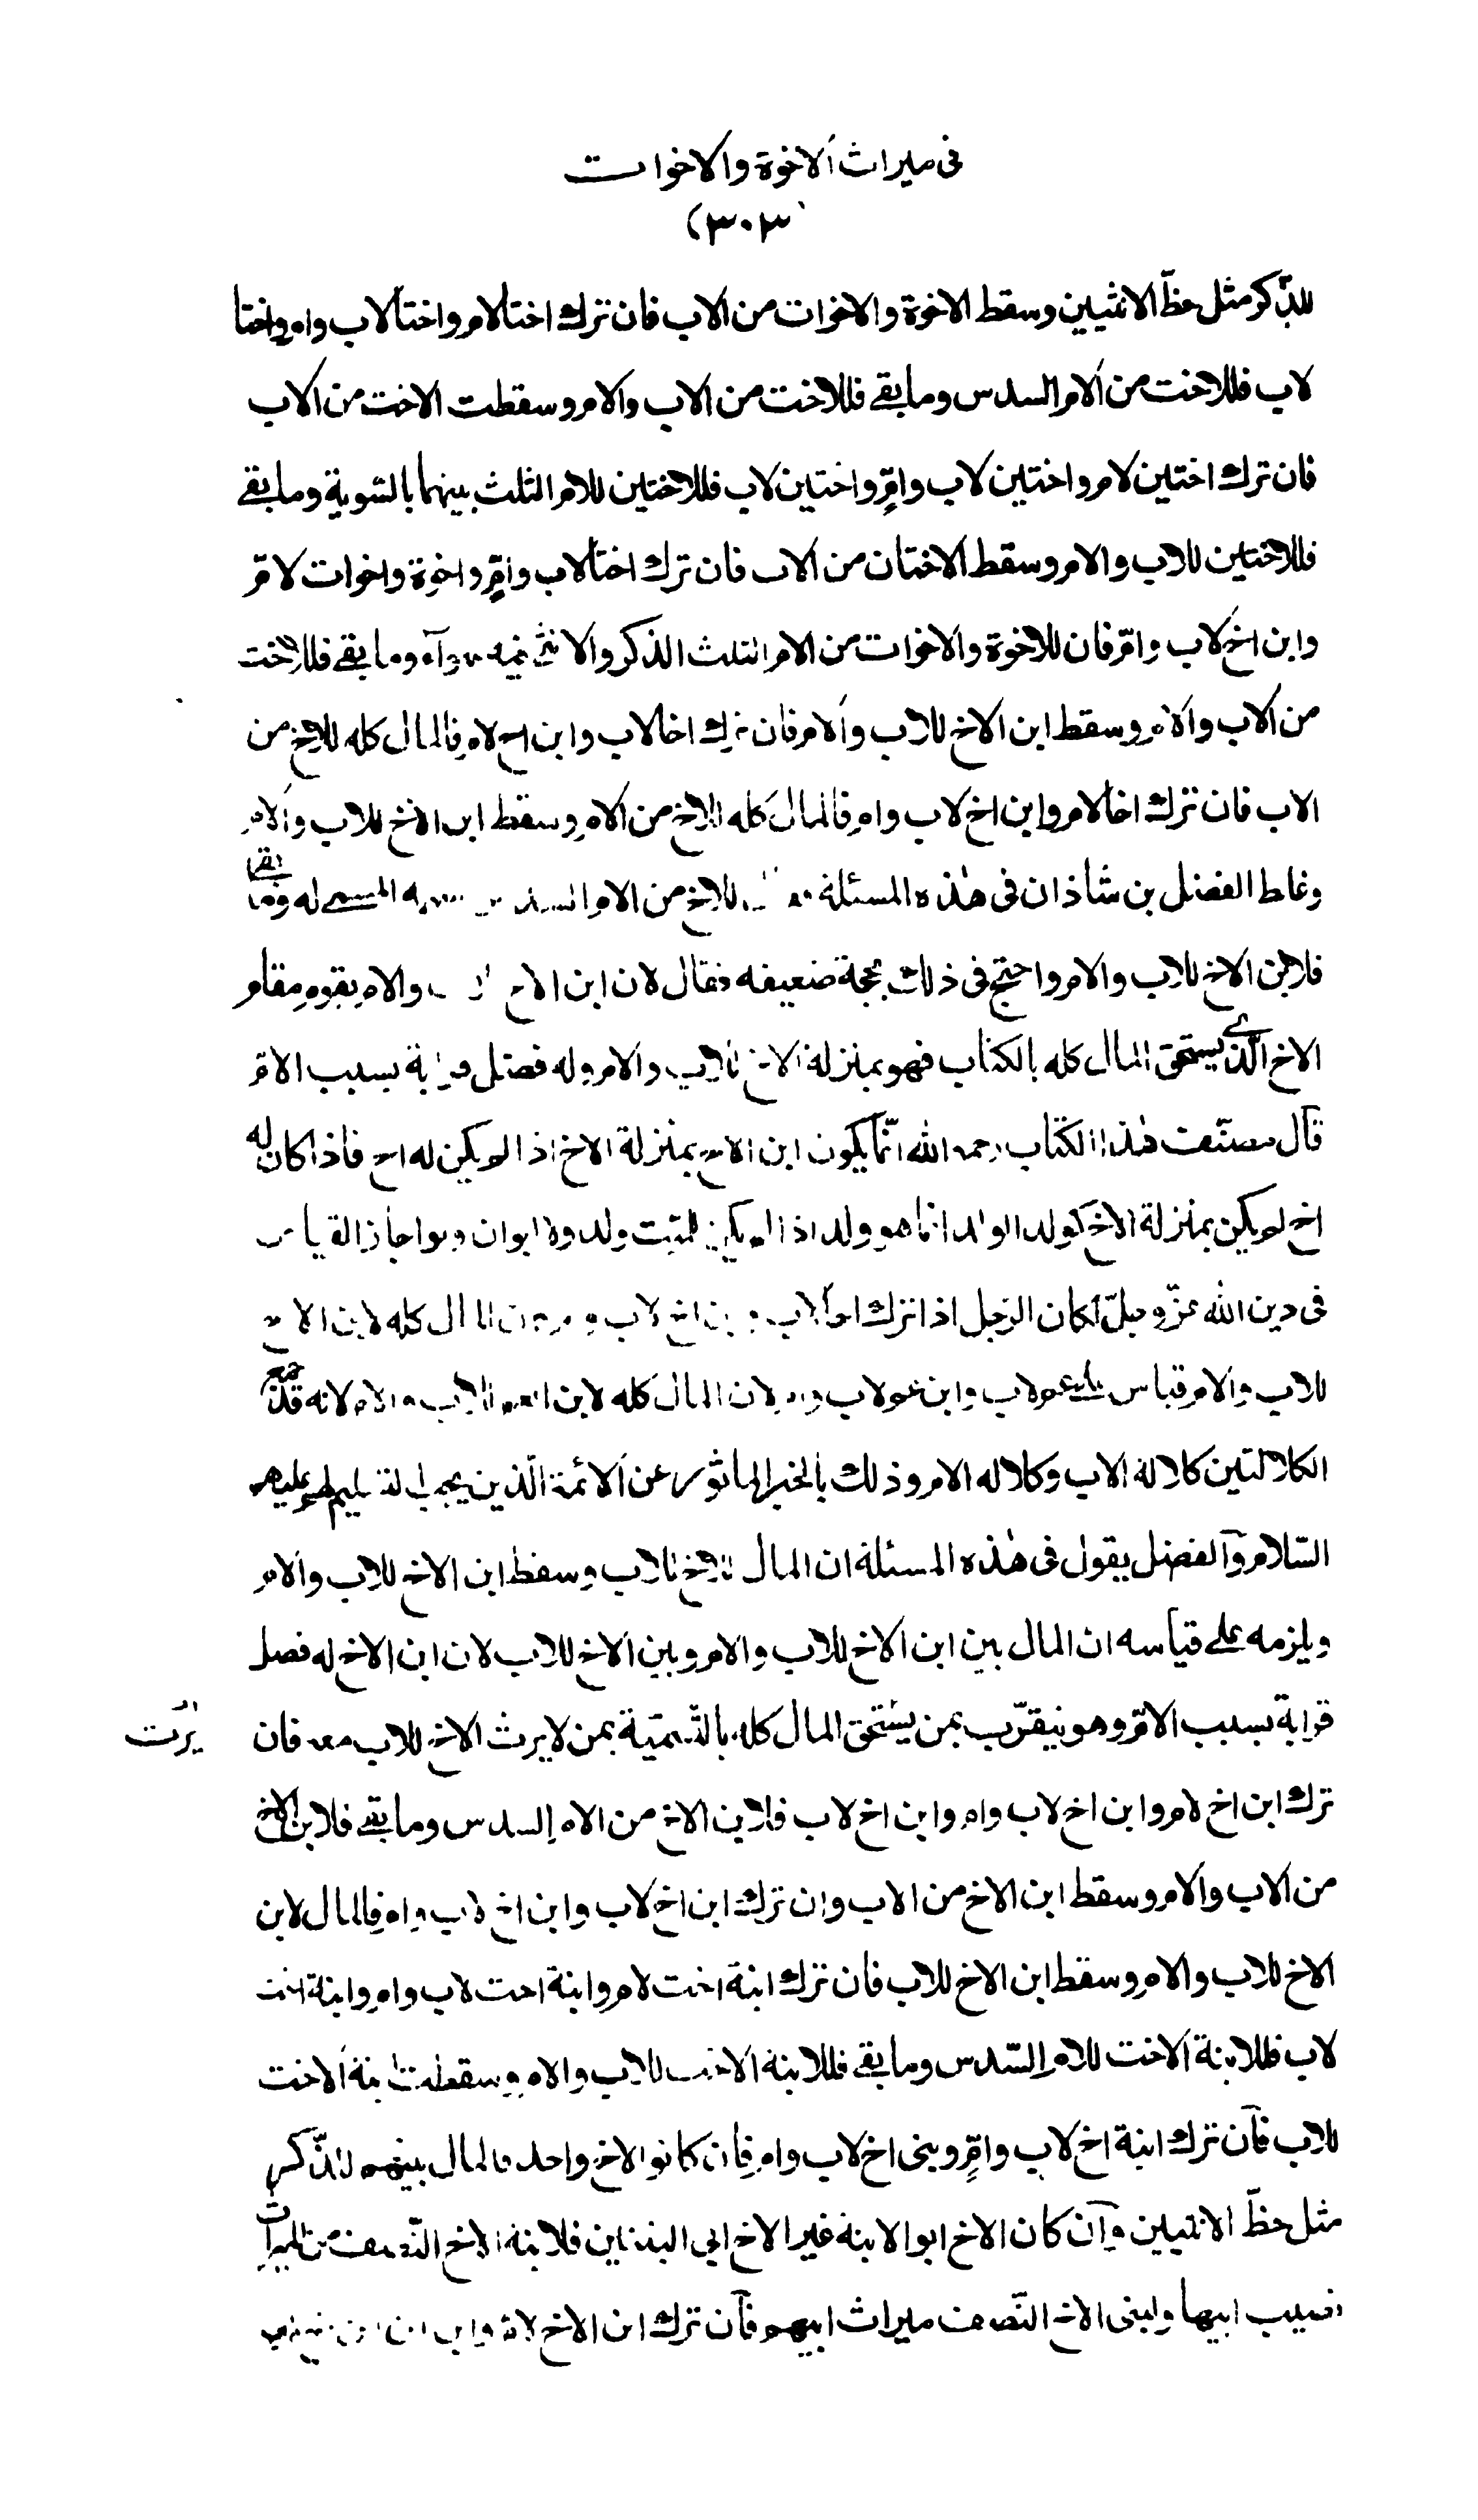 فى ميراث الاخوة والاخوات
(٣٠٣
للذّكر مثل حظّ الانثيين وسقط الاخوة والاخوات من الاب فان ترك اختا لام واختا لاب وام واختا
لاب فللاخت من الام السدس وما بقى فللاخت من الاب والام وسقطت الاخت من الاب
فان ترك اختين لام واختين لاب وامّ واختين لاب فللاختين للام الثلث بينهما بالسّوية وما بقى
فللاختين للاب والام وسقط الاختان من الاب فان ترك اختا لاب وامّ واخوة واخوات لامّ
وابن اخ لاب وامّ فان للاخوة والاخوات من الام الثلث الذكر والانثى فيه سوآء وما بقى فللاخت
من الاب والام وسقط ابن الاخ للاب والام فان ترك اخا لاب وابن اخ لام فالمال كله للاخ من
الاب فان ترك اخا لام وابن اخ لاب وام فالمال كله للاخ من الام وسقط ابن الاخ للاب والام
وغلط الفضل بن شاذان فى هذه المسئلة للاخ من الام السدس المسمى له وما بقى
فلابن الاخ للاب والام واحتج فى ذلك بحجة ضعيفه فقال لان ابن الاخ والام يقوم مقام
الاخ الّذى يستحق المال كله بالكتاب فهو بمنزلة الاخ للاب والام وله فضل قرابة بسبب الامّ
قآل مصنّف هذا الكتاب رحمه الله انّما يكون ابن الاخ بمنزلة الاخ اذا لم يكن له اخ فاذا كان له
اخ لم يكن بمنزلة الاخ كولد الولد انما هو ولد اذا لم يكن للميّت ولد ولا ابوان ولو جاز القياس
فى دين الله عزّ وجلّ لكان الرّجل اذا ترك اخا لاب وابن اخ لاب وام ان المال كله لابن الاخ
للاب والام قياس على عم لاب وابن عم لاب وام لان المال كله لابن العم للاب والام لانه قد جمع
الكلالتين كلالة الاب وكلاله الام وذلك بالخبر الماثور عن الائمة الّذين يجب التسليم لهم عليهم
السّلام وآلفضل يقول فى هذه المسئلة ان المال للاخ للاب وسقط ابن الاخ للاب والام
ويلزمه على قياسه ان المال بين ابن الاخ للاب والام وبين الاخ للاب لان ابن الاخ له فضل
قرابة بسبب الامّ وهو يتقرّب بمن يستحق المال كله بالتّسميّة بمن لا يرث الاخ للاب معه فان
يرث
ترك ابن اخ لام وابن اخ لاب وام وابن اخ لاب فلابن الاخ من الام السدس وما بقى فلابن الاخ
من الاب والام وسقط ابن الاخ من الاب وان ترك ابن اخ لاب وابن اخ لاب وام فالمال لابن
الاخ للاب والام وسقط ابن الاخ للاب فان ترك ابنة اخت لام وابنة اخت لاب وام وابنة اخت
لاب فللابنة الاخت للام السّدس وما بقى فللابنة الاخت للاب والام وسقطت ابنة الاخت
للاب فآن ترك ابنة اخ لاب وامّ وبنى اخ لاب وام فان كانوا لاخ واحد فالمال بينهم للذّكر
مثل حظّ الانثيين وآن كان الاخ ابو الابنة غير الاخ ابى البنين فلابنة الاخ النّصف من الميراث
نصيب ابيها ولبنى الاخ النّصف ميراث ابيهم فآن ترك ابن الاخ لام